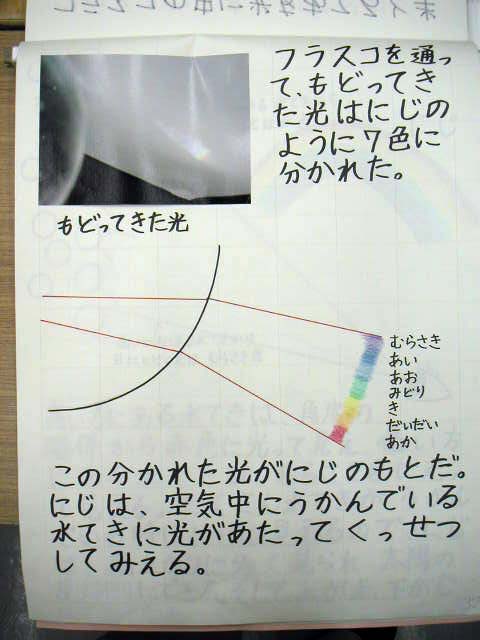 フラスコを通っ
て、もどってき
た光はにじの
ように7色に
分かれた。
もどってきた光
むらさき
あい
あお
みどり
き
だいだい
あか
この分かれた光がにじのもとだ。
にじは、空気中にうかんでいる
水てきに光があたってくっせつ
してみえる。